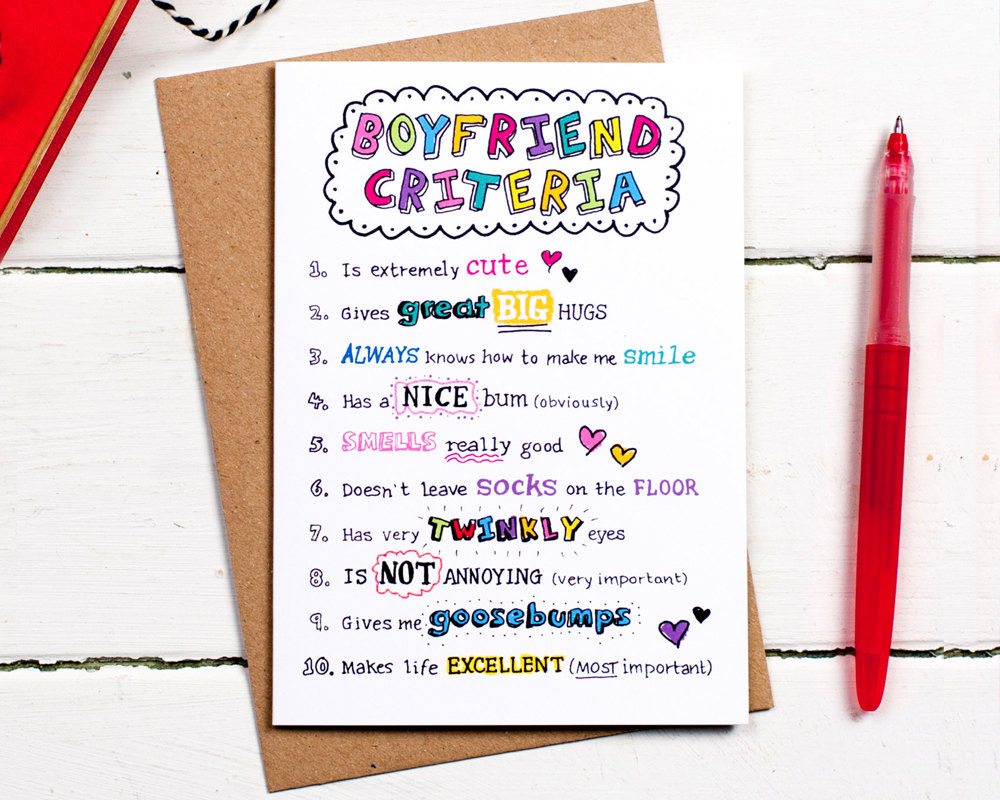 BOYFRIEND
CRITERIA
1. Is extremely cute
2. Gives great BIG HUGS
3. ALWAYS knows how to make me smile
4. Has a NICE bum (obviously)
5. SMELLS really good
6. Doesn't leave socks on the FLOOR
7. Has very TWINKLY eyes
8. IS NOT ANNOYING (very important)
9. Gives me goosebumps
10. Makes life EXCELLENT (MOST important)